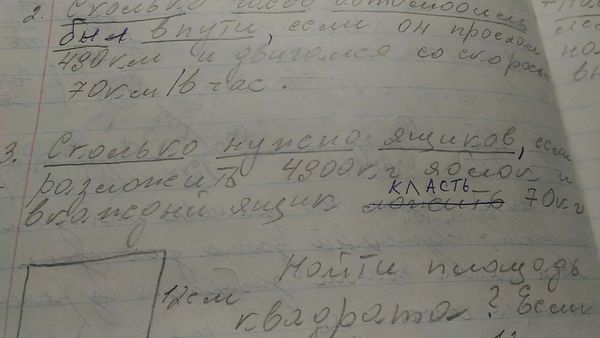 2. Сколько часов автомобиль
был в пути, если он проехал
490км и двигался со скорос-
70км/в час.
3. Сколько нужно ящиков, если
разложить 4900кг яблок и
в каждый ящик ложить КЛАСТЬ 70кг
12см
Найти площадь
квадрата? Если